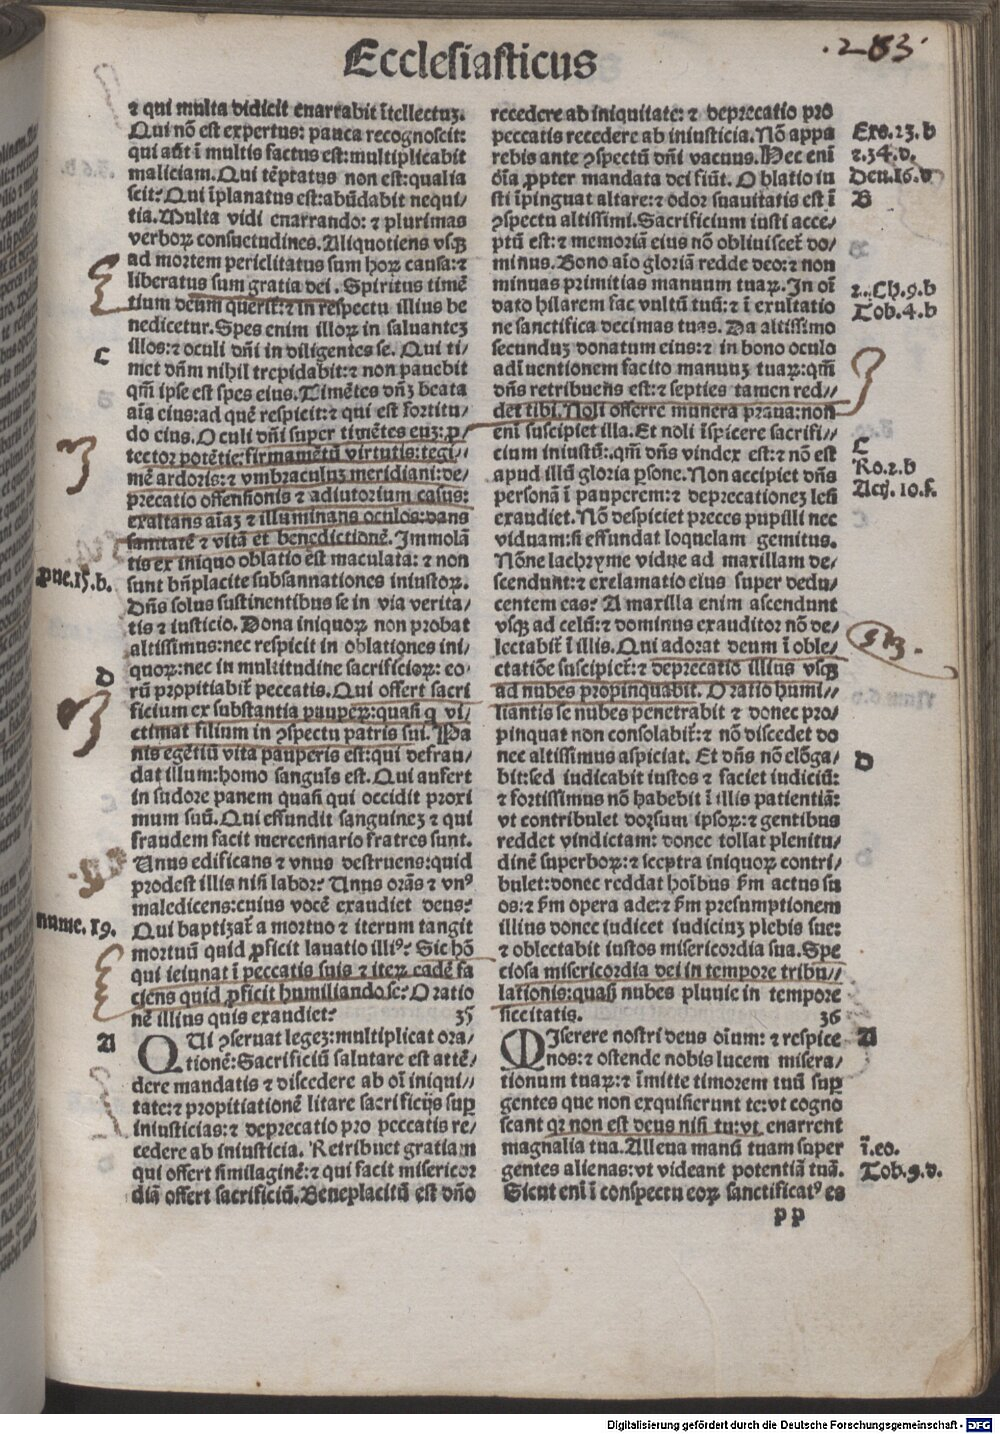 Ecclesiasticus
·283·
⁊ qui multa didicit enarrabit ītellectuꝫ.
Qui nō est expertus: pauca recognoscit:
qui aūt ī multis factus est:multiplicabit
maliciam. Qui tēptatus non est:qualia
scit? Qui īplanatus est:abūdabit nequi/
tia. Multa vidi enarrando: ⁊ plurimas
verboꝝ consuetudines. Aliquotiens vsqꝫ
ad mortem periclitatus sum hoꝝ causa:⁊
liberatus sum gratia dei . Spiritus timē
tium deum querit̄:⁊ in respectu illius be
nedicetur. Spes enim illoꝝ in saluanteꝫ
illos:⁊ oculi dn̄i in diligentes se. Qui ti/
met dn̄m nihil trepidabit:⁊ non pauebit
qm̄ ipse est spes eius. Timētes dn̄ꝫ beata
aīa eius:ad quē respicit:⁊ qui est fortitu/
do eius. Oculi dn̄i super timētes euꝫ: ꝓ/
tector potētie:firmamētū virtutis:tegi/
mē ardoris:⁊ vmbraculuꝫ meridiani:de/
precatio offensionis ⁊ adiutorium casus:
exaltans aīaꝫ ⁊ illuminans oculos:dans
sanitatē ⁊ vitā et benedictionē. Immolā
tis ex iniquo oblatio est maculata: ⁊ non
sunt bn̄placite subsannationes iniustoꝝ.
Dn̄s solus sustinentibus se in via verita/
tis ⁊ iusticie. Dona iniquoꝝ non probat
altissimus:nec respicit in oblationes ini/
quoꝝ:nec in multitudine sacrificioꝝ: eo/
rū ꝓpitiabit̄ peccatis. Qui offert sacri
ficium ex substantia paupeꝝ:quasi q̄ vi/
ctimat filium in ꝯspectu patris sui. Pa
nis egētiū vita pauperis est:qui defrau/
dat illum:homo sanguīs est. Qui aufert
in sudore panem quasi qui occidit proxi
mum suū. Qui effundit sanguineꝫ ⁊ qui
fraudem facit mercennario fratres sunt.
Unus edificans ⁊ vnus destruens:quid
prodest illis nisi labor? Unus orās ⁊ vnꝰ
maledicens:cuius vocē exaudiet deus?
Qui baptizat̄ a mortuo ⁊ iterum tangit
mortuū quid ꝓficit lauatio illiꝰ? Sic hō
qui ieiunat ī peccatis suis ⁊ iteꝝ eadē fa
ciens quid ꝓficit humiliando se? Oratio
nē illius quis exaudiet? 35
QUi ꝯseruat legeꝫ:multiplicat ora/
tionē:Sacrificiū salutare est attē/
dere mandatis ⁊ discedere ab oī iniqui//
tate:⁊ propitiationē litare sacrificijs suꝑ
iniusticias:⁊ deprecatio pro peccatis re/
cedere ab iniusticia. Retribuet gratiam
qui offert similaginē:⁊ qui facit misericor
diā offert sacrificiū. Beneplacitū est dn̄o
C
pue.15.b.
D
nume.19.
A
recedere ab iniquitate: ⁊ deprecatio pro
peccatis recedere ab iniusticia. Nō appa
rebis ante ꝯspectū dn̄i vacuus. Hec enī
oīa ꝓpter mandata dei fiūt. Oblatio iu
sti īpinguat altare:⁊ odor suauitatis est ī
ꝯspectu altissimi. Sacrificium iusti acce/
ptū est:⁊ memoriā eius nō obliuiscet̄ do/
minus. Bono aīo gloriā redde deo:⁊ non
minuas primitias manuum tuaꝝ. In oī
dato hilarem fac vultū tuū:⁊ ī exultatio
ne sanctifica decimas tuas. Da altissimo
secunduꝫ donatum eius:⁊ in bono oculo
adīuentionem facito manuuꝫ tuaꝝ:qm̄
dn̄s retribuens est:⁊ septies tamen red//
det tibi. Noli offerre munera praua:non
enī suscipiet illa. Et noli īspicere sacrifi//
cium iniustū:qm̄ dn̄s vindex est:⁊ nō est
apud illū gloria ꝑsone. Non accipiet dn̄s
personā ī pauperem:⁊ deprecationeꝫ lesi
exaudiet. Nō despiciet preces pupilli nec
viduam:si effundat loquelam gemitus.
Nōne lachryme vidue ad maxillam de/
scendunt:⁊ exclamatio eius super dedu/
centem eas? A maxilla enim ascendunt
vsqꝫ ad celū:⁊ dominus exauditor nō de/
lectabit̄ ī illis. Qui adorat deum ī oble/
ctatiōe suscipiet̄:⁊ deprecatio illius vsqꝫ
ad nubes propinquabit. Oratio humi//
liantis se nubes penetrabit ⁊ donec pro/
pinquat non consolabit̄:⁊ nō discedet do
nec altissimus aspiciat. Et dn̄s nō elōga/
bit:sed iudicabit iustos ⁊ faciet iudiciū:
⁊ fortissimus nō habebit ī illis patientiā:
vt contribulet dorsum ipsoꝝ:⁊ gentibus
reddet vindictam: donec tollat plenitu/
dinē superboꝝ:⁊ sceptra iniquoꝝ contri/
bulet:donec reddat hoībus s̄m actus su
os:⁊ s̄m opera ade:⁊ s̄m presumptionem
illius donec iudicet iudiciuꝫ plebis sue:
⁊ oblectabit iustos misericordia sua. Spe
ciosa misericordia dei in tempore tribu//
lationis:quasi nubes pluuie in tempore
siccitatis. 36
MIserere nostri deus oīum: ⁊ respice
nos:⁊ ostende nobis lucem misera/
tionum tuaꝝ:⁊ īmitte timorem tuū suꝑ
gentes que non exquisierunt te:vt cogno
scant qꝛ non est deus nisi tu:vt enarrent
magnalia tua. Alleua manū tuam super
gentes alienas:vt videant potentiā tuā.
Sicut enī ī conspectu eoꝝ sanctificatꝰ es
pp
Exo.23.b
⁊.34.d.
Deu.16.d
B
2.Ch.9.b
Tob.4.b
C
Ro.2.b
Act̄.10.f.
D
A
ī.eo.
Tob.9.d.
Digitalisierung gefördert durch die Deutsche Forschungsgemeinschaft - DFG